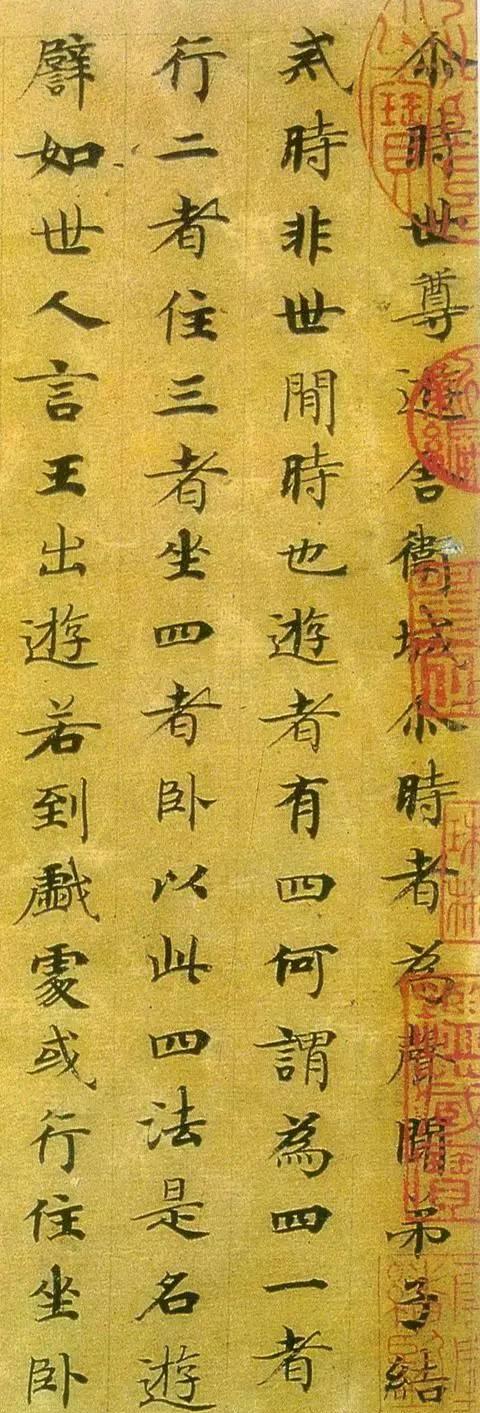 尒時世尊遊舍衛城尒時者為聲聞弟子結
戒時非世閒時也遊者有四何謂為四一者
行二者住三者坐四者卧以此四法是名遊
譬如世人言王出遊若到戱處或行住坐卧